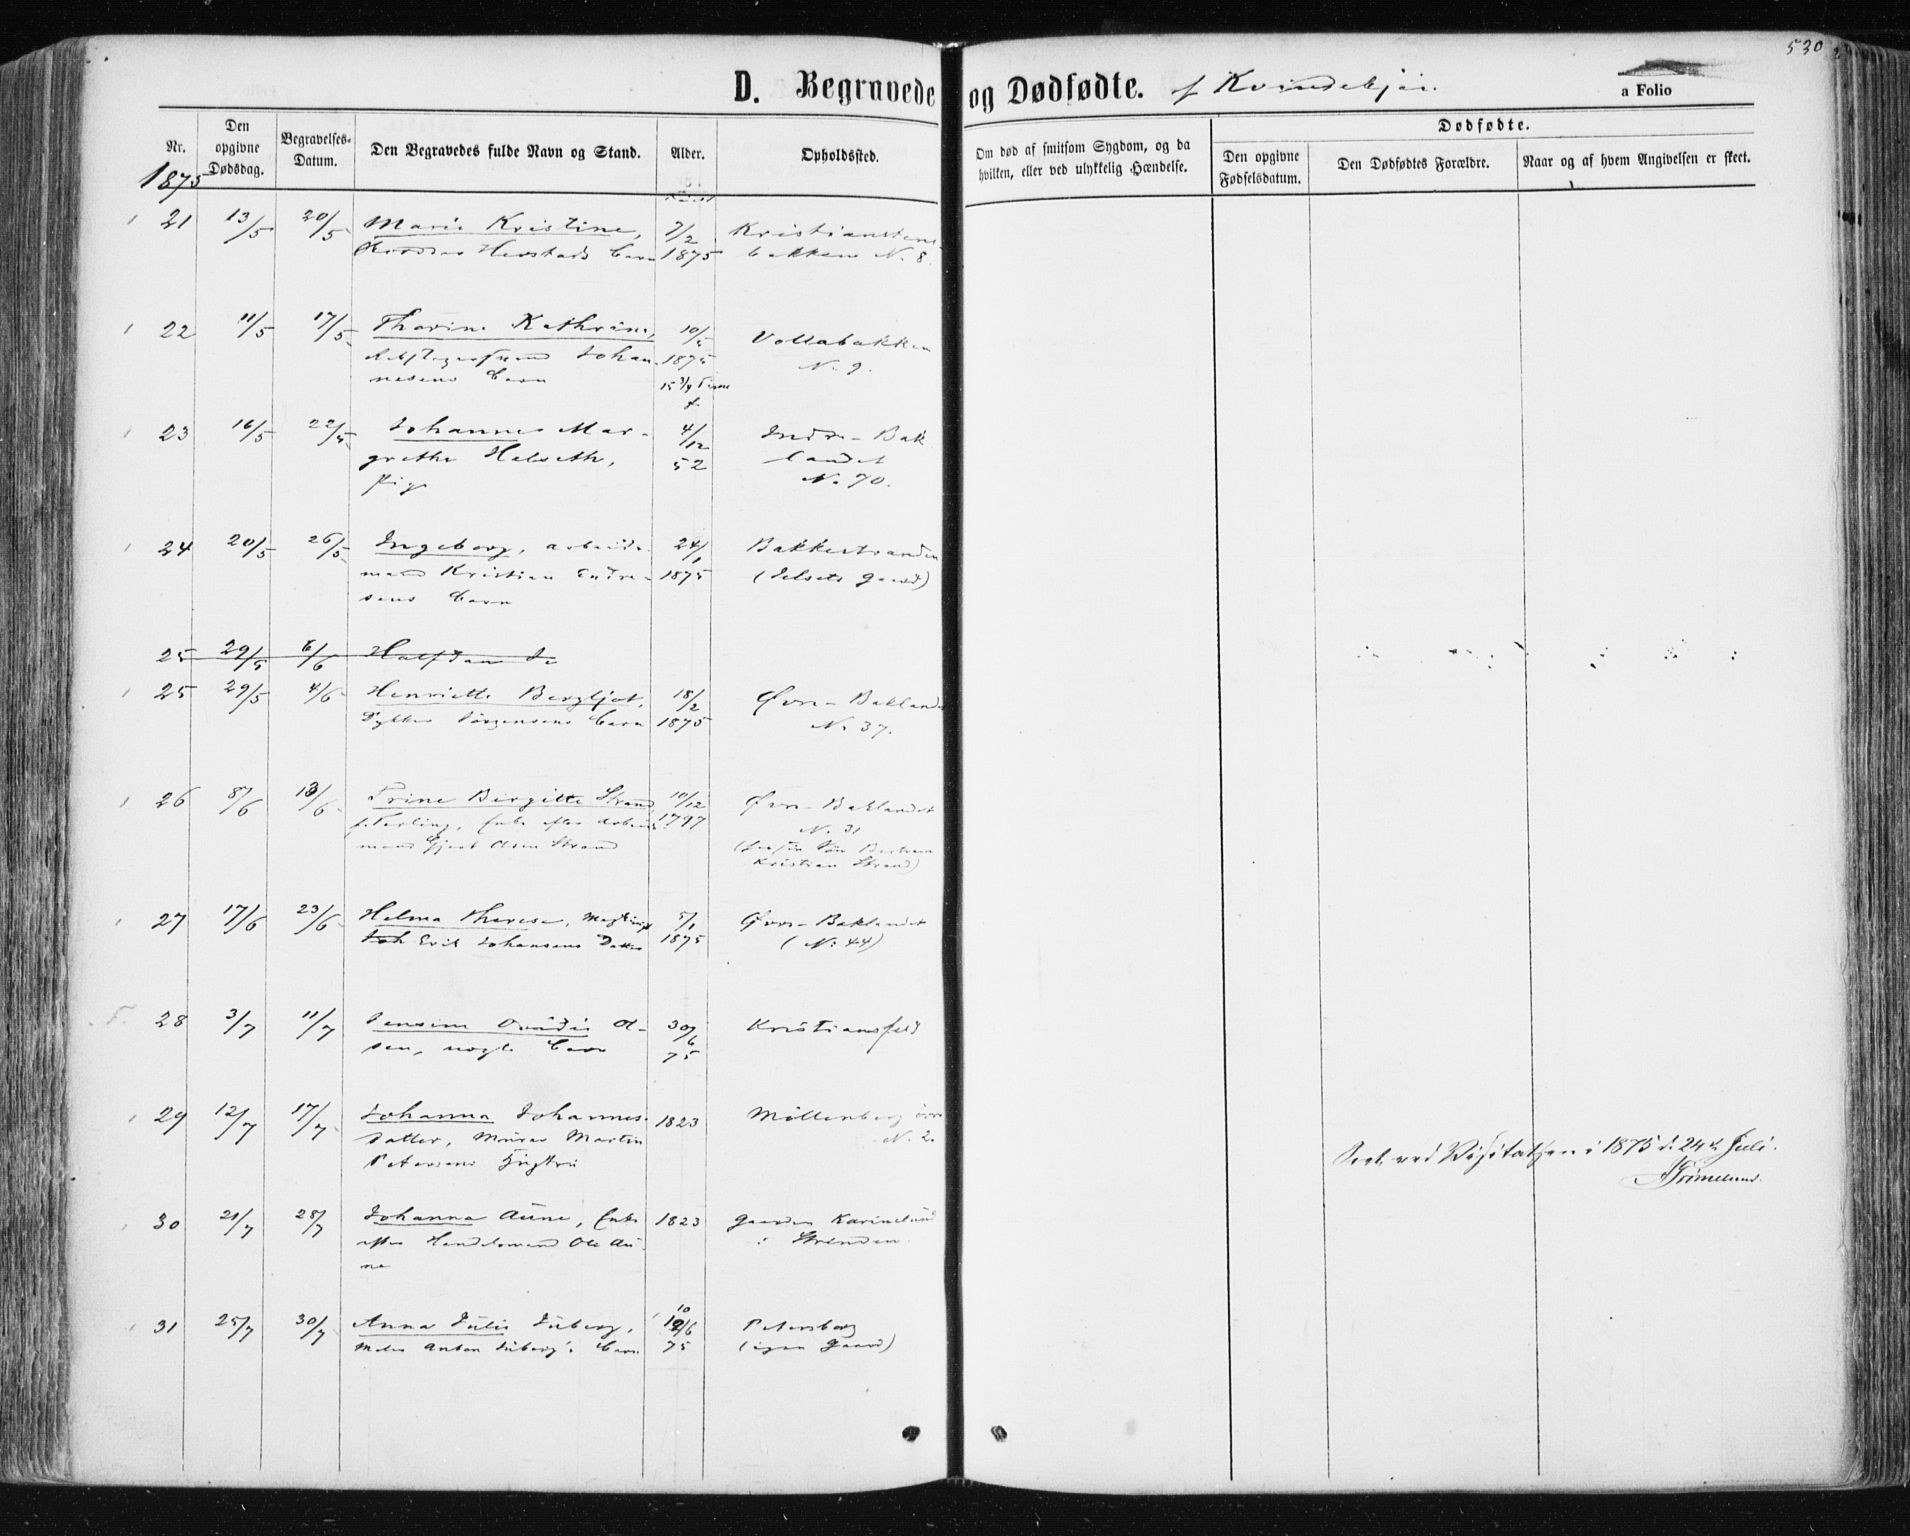 530
D. Begravede og Dødfødte. af Kvindekjøn.
a Folio
Nr.
Den opgivne Dødsdag.
Begravelses-Datum.
Den Begravedes fulde Navn og Stand.
Alder.
Opholdssted.
Om død af smitsom Sygdom, og da hvilken, eller ved ulykkelig Hændelse.
Dødfødte.
Den opgivne Fødselsdatum.
Den Dødfødtes Forældre.
Naar og af hvem Angivelsen er skeet.
1875
21 13/5 20/5 Marie Kristine, 7/2 Kristianstens-
Barn 1875 bakken N. 8.
22 11/5 17/5 Thorine Kathrine, 10/5 Vollabakken
Johan- 1875 N. 9.
nesens Barn 15 3/4 Time
23 16/5 22/5 Johanne Mar- 4/12 Indre-Bak
grethe Helseth, 52 landet
Pige N. 70.
24 20/5 26/5 Ingeborg, arbeids- 24/1 Bakkestranden
mand Kristian Endre- 1875 (Jelsets gaard)
sens Barn
25 29/5 6/6 Halfdan
25 29/5 4/6 Henriette Bergljot, 18/2 Øvre-Baklandet
Dykker Jörgensens Barn 1875 N. 37.
26 8/6 13/6 Trine Birgitte Strand 10/12 Øvre-Baklandet
Enke efter Arbeids- 1797 N. 31
mand Strand
Kristian Strand)
27 17/6 23/6 Helma Therese, 5/1 Øvre-Baklandet
Joh Erik Johansens Datter 1875 (N. 44)
28 3/7 11/7 Jensine Ovidie Ol- 30/6 Kristiansfeld
sen, uægte Barn 75
29 12/7 17/7 Johanna Johannes- 1823 Möllenberg övre
datter, Murer Martin N. 2.
Petersens Hustru
Seet ved Visitatsen i 1875 d. 24de Juli.
A Grimelund.
30 21/7 28/7 Johanna Aune, Enke 1823 gaarden Karinelund
efter Handelsmand Ole Au- i Strinden.
ne
31 25/7 30/7 Anna Julie Juberg, 10/6 Petersborg
Maler Anton Juberg's Barn 75 (egen Gaard)